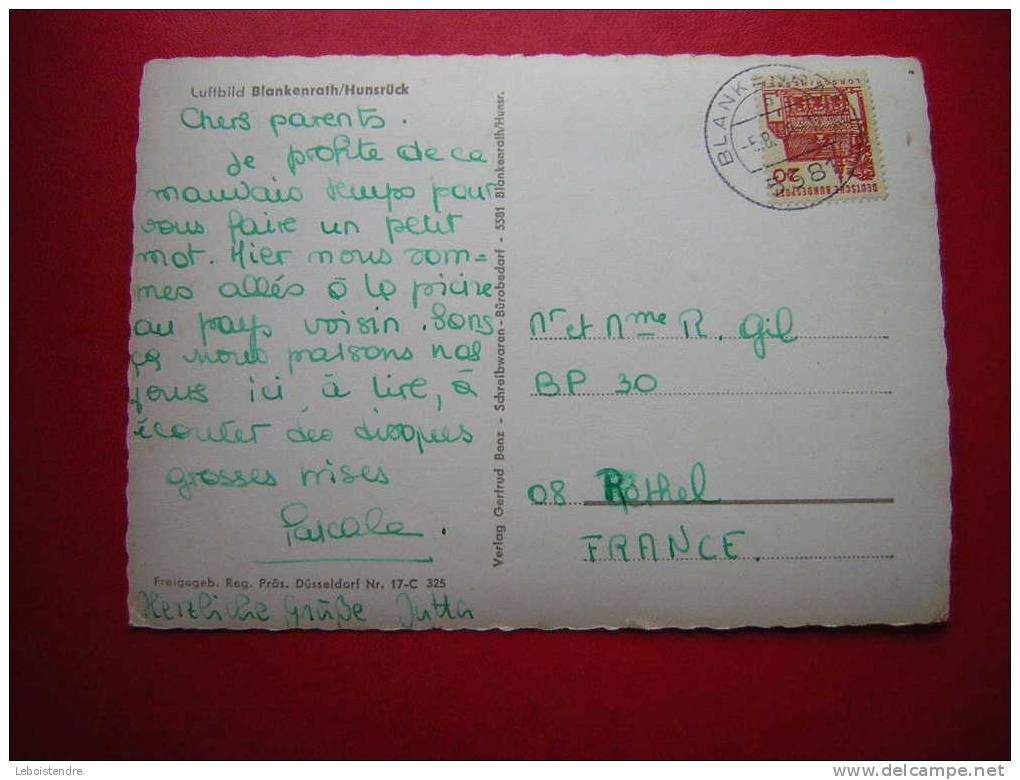 Luftbild Blankenrath/Hunsrück
Chers parents.
Je profite de ce
mauvais temps pour
vous faire un petit
mot. Hier nous som=
mes allés à la picine
au pays voisin. Sans
ça nous passons nos
jours ici à lire, à
écouter des disques
grosses bises
Pascale.
Freigegeb. Reg. Präs. Düsseldorf Nr. 17-C 325
Herzliche Grüße Jutta
Verlag Gertrud Benz - Schreibwaren - Bürobedarf - 5581 Blankenrath/Hunsr.
BLANKENRATH
5581
DEUTSCHE BUNDESPOST
20
Mr et Mme R. Gil
BP 30
08 Rethel
FRANCE.
Leboistendre